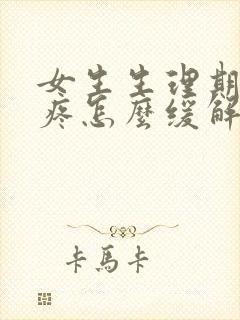 女生生理期
疼怎麼缓解
卡馬卡